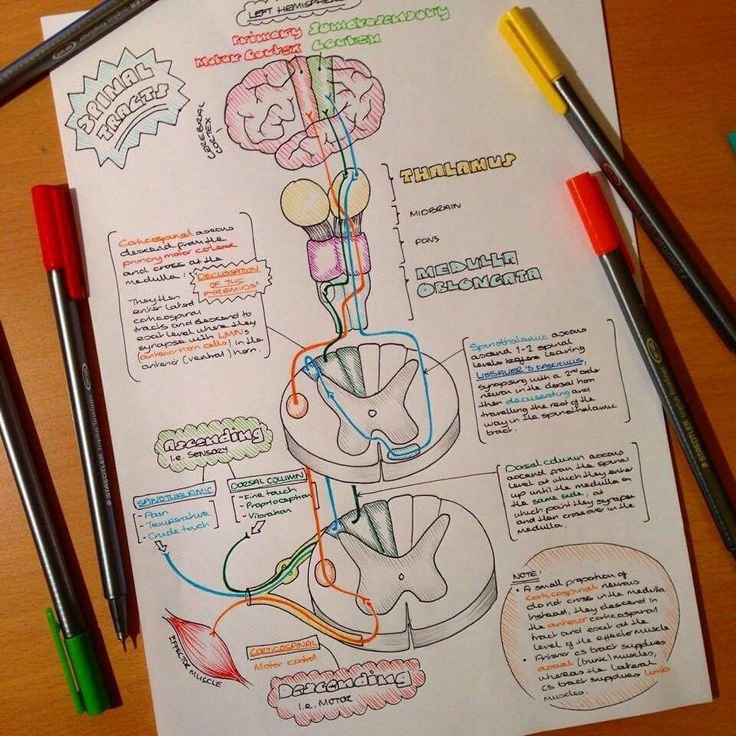 LEFT HEMISPHERE
Primary Somatosensory
Motor Cortex Cortex
SPINAL
TRACTS
CEREBRAL
CORTEX
THALAMUS
MIDBRAIN
PONS
MEDULLA
OBLONGATA
Corticospinal axons
descend from the
primary motor cortex
and cross at the
medulla:
'DECUSSATION
OF THE
PYRAMIDS'
They then
enter lateral
corticospinal
tracts and descend to
exit level where they
synapse with LMNs
(anterior horn cells) in the
anterior (ventral) horn.
Spinothalamic axons
ascend 1-2 spinal
levels before leaving
LISSAUER'S FASCICULUS,
synapsing with a 2nd order
neuron in the dorsal horn
then decussating and
travelling the rest of the
way in the spinothalamic
tract.
Ascending
i.e. SENSORY
SPINOTHALAMIC
- Pain
- Temperature
- Crude touch
DORSAL COLUMN
- Fine touch
- Proprioception
- Vibration
Dorsal column axons
ascend from the spinal
level at which they enter
up until the medulla on
the same side, at
which point they synapse
and then cross over in the
medulla.
NOTE:
• A small proportion of
corticospinal neurons
do not cross in the medulla
Instead, they descend in
the anterior corticospinal
tract and exit at the
level of the effector muscle
• Anterior cs tract supplies
axial (trunk) muscles,
whereas the lateral
cs tract supplies limb
muscles.
EFFECTOR MUSCLE
CORTICOSPINAL
Motor control
Descending
i.e. MOTOR
STAEDTLER triplus fineliner
STAEDTLER triplus fineliner